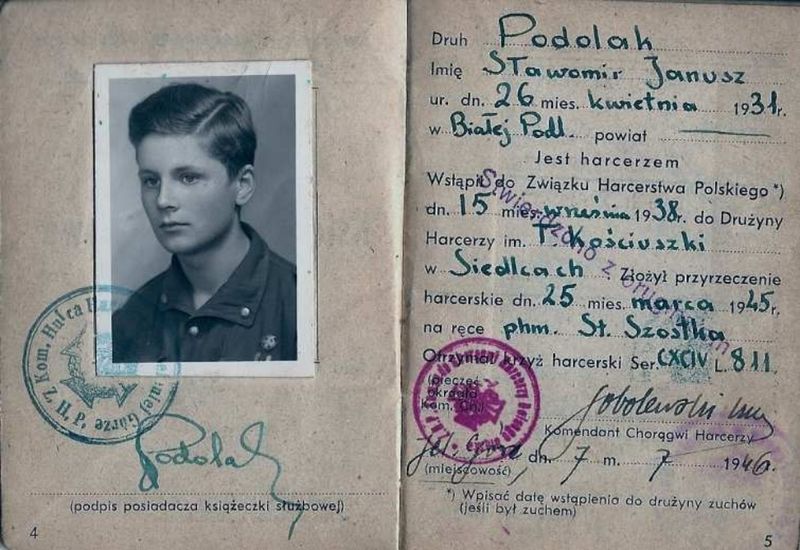 Z. H. P. Kom. Hufca Ha
Jeleniej Górze
Podolak
(podpis posiadacza książeczki służbowej)
4
Druh Podolak
Imię Sławomir Janusz
ur. dn. 26 mies. kwietnia 1931 r.
w Białej Podl. powiat
Jest harcerzem
Wstąpił do Związku Harcerstwa Polskiego *)
dn. 15 mies. września 1938 r. do Drużyny
Harcerzy im. T. Kościuszki
w Siedlcach Złożył przyrzeczenie
harcerskie dn. 25 mies. marca 1945 r.
na ręce phm. St. Szostka
Otrzymał krzyż harcerski Ser. CXCIV L. 811
Stwierdzono z
(pieczęć
okrągła
Kom. Ch.)
Sobolewski
Komendant Chorągwi Harcerzy
Jel. Góra dn. 7 m. 7 1946.
(miejscowość)
*) Wpisać datę wstąpienia do drużyny zuchów
(jeśli był zuchem)
5